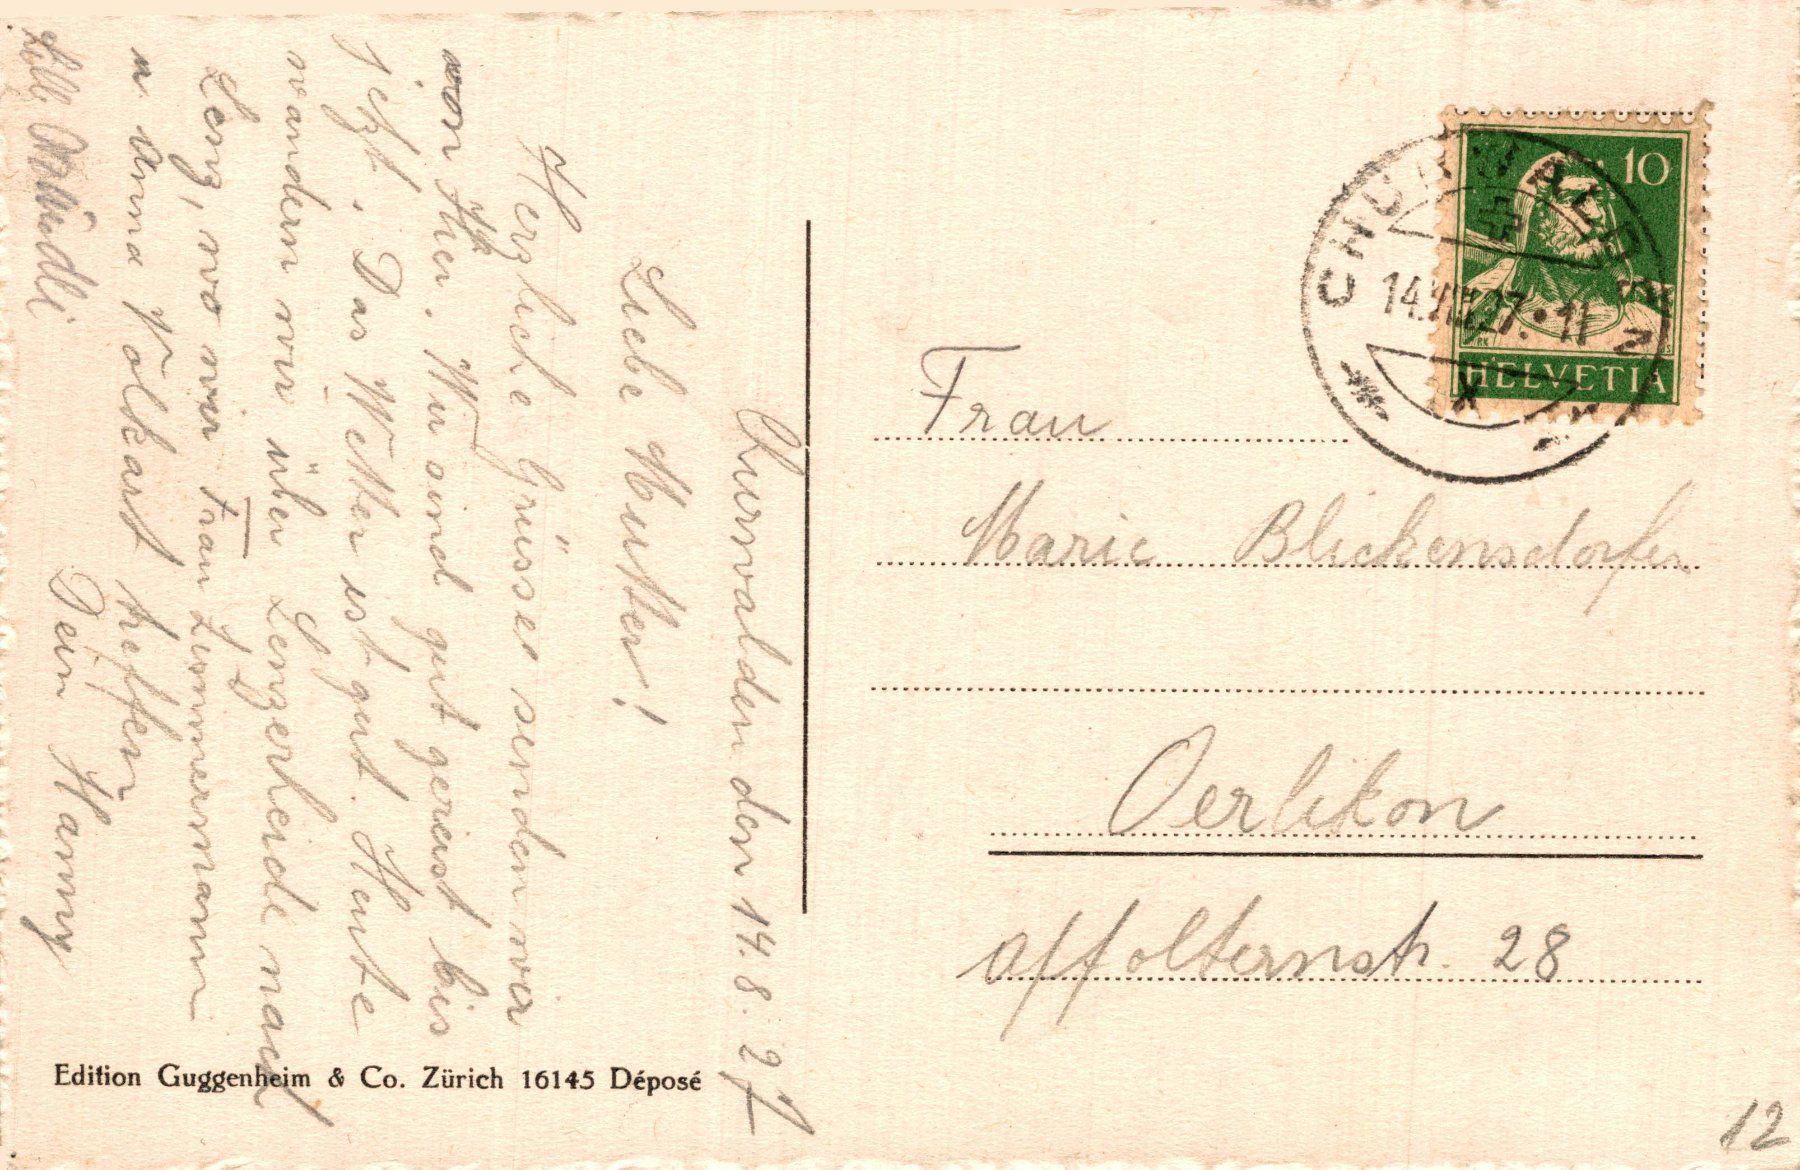 Churwalden den 14. 8. 27
Liebe Mutter!
Herzliche Grüsse senden wir
von hier. Wir sind gut gereist bis
jetzt. Das Wetter ist gut. Heute
wandern wir über Lenzerheide nach
Lenz, wo wir Frau Zimmermann
u Anna Volkart treffen
Dein Hanny
10
HELVETIA
CHURWALDEN
14.VIII.27.11
Frau
Marie Blickensdorfer
Oerlikon
Affolternstr. 28
Edition Guggenheim & Co. Zürich 16145 Déposé
12